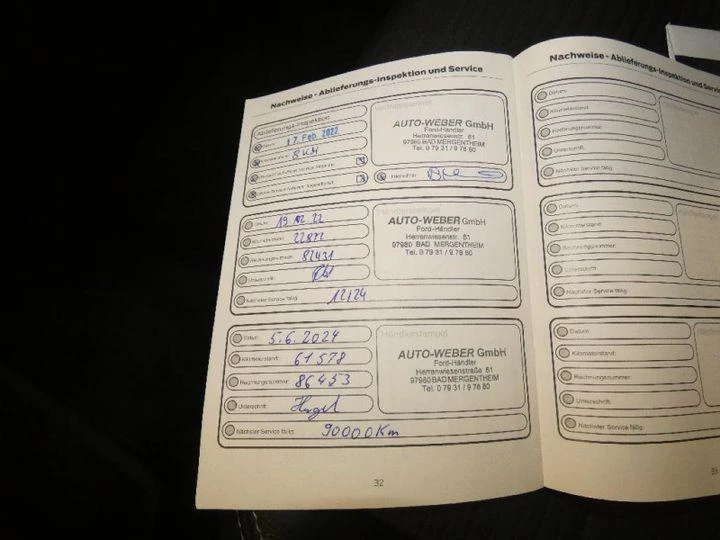 Nachweise - Ablieferungs-Inspektion und Service
Ablieferungs-Inspektion
17. Feb. 2022
8 KM
AUTO-WEBER GmbH
Ford-Händler
Herrenwiesenstr. 61
97980 BAD MERGENTHEIM
Tel. 0 79 31 / 9 76 60
Unterschrift:
Händlerstempel
Datum:
Kilometerstand: 22872
Rechnungsnummer: 82431
Unterschrift:
Nächster Service fällig: 12/24
AUTO-WEBER GmbH
Ford-Händler
Herrenwiesenstr. 61
97980 BAD MERGENTHEIM
Tel. 0 79 31 / 9 76 60
Händlerstempel
Datum: 5.6.2024
Kilometerstand: 61578
Rechnungsnummer: 86453
Unterschrift:
Nächster Service fällig: 90000 Km
AUTO-WEBER GmbH
Ford-Händler
Herrenwiesenstraße 61
97980 BAD MERGENTHEIM
Tel. 0 79 31 / 9 76 60
32
Nachweise - Ablieferungs-Inspektion und Service
Datum:
Kilometerstand:
Rechnungsnummer:
Unterschrift:
Nächster Service fällig:
Datum:
Kilometerstand:
Rechnungsnummer:
Unterschrift:
Nächster Service fällig:
Datum:
Kilometerstand:
Rechnungsnummer:
Unterschrift:
Nächster Service fällig:
33